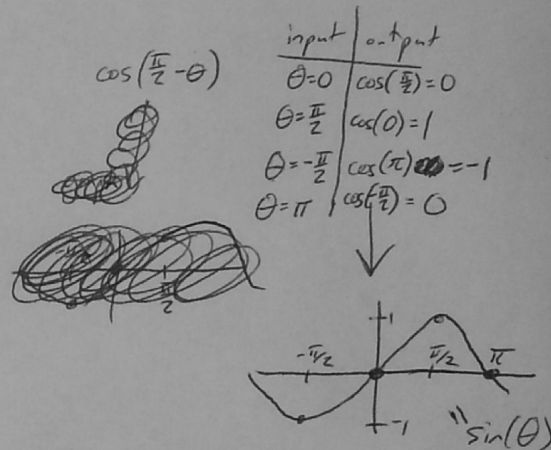 cos(π/2 - θ)
input | output
θ=0 | cos(π/2)=0
θ=π/2 | cos(0)=1
θ=-π/2 | cos(π) =-1
θ=π | cos(-π/2)=0
π/2
1
-π/2 π/2 π
-1
"sin(θ)